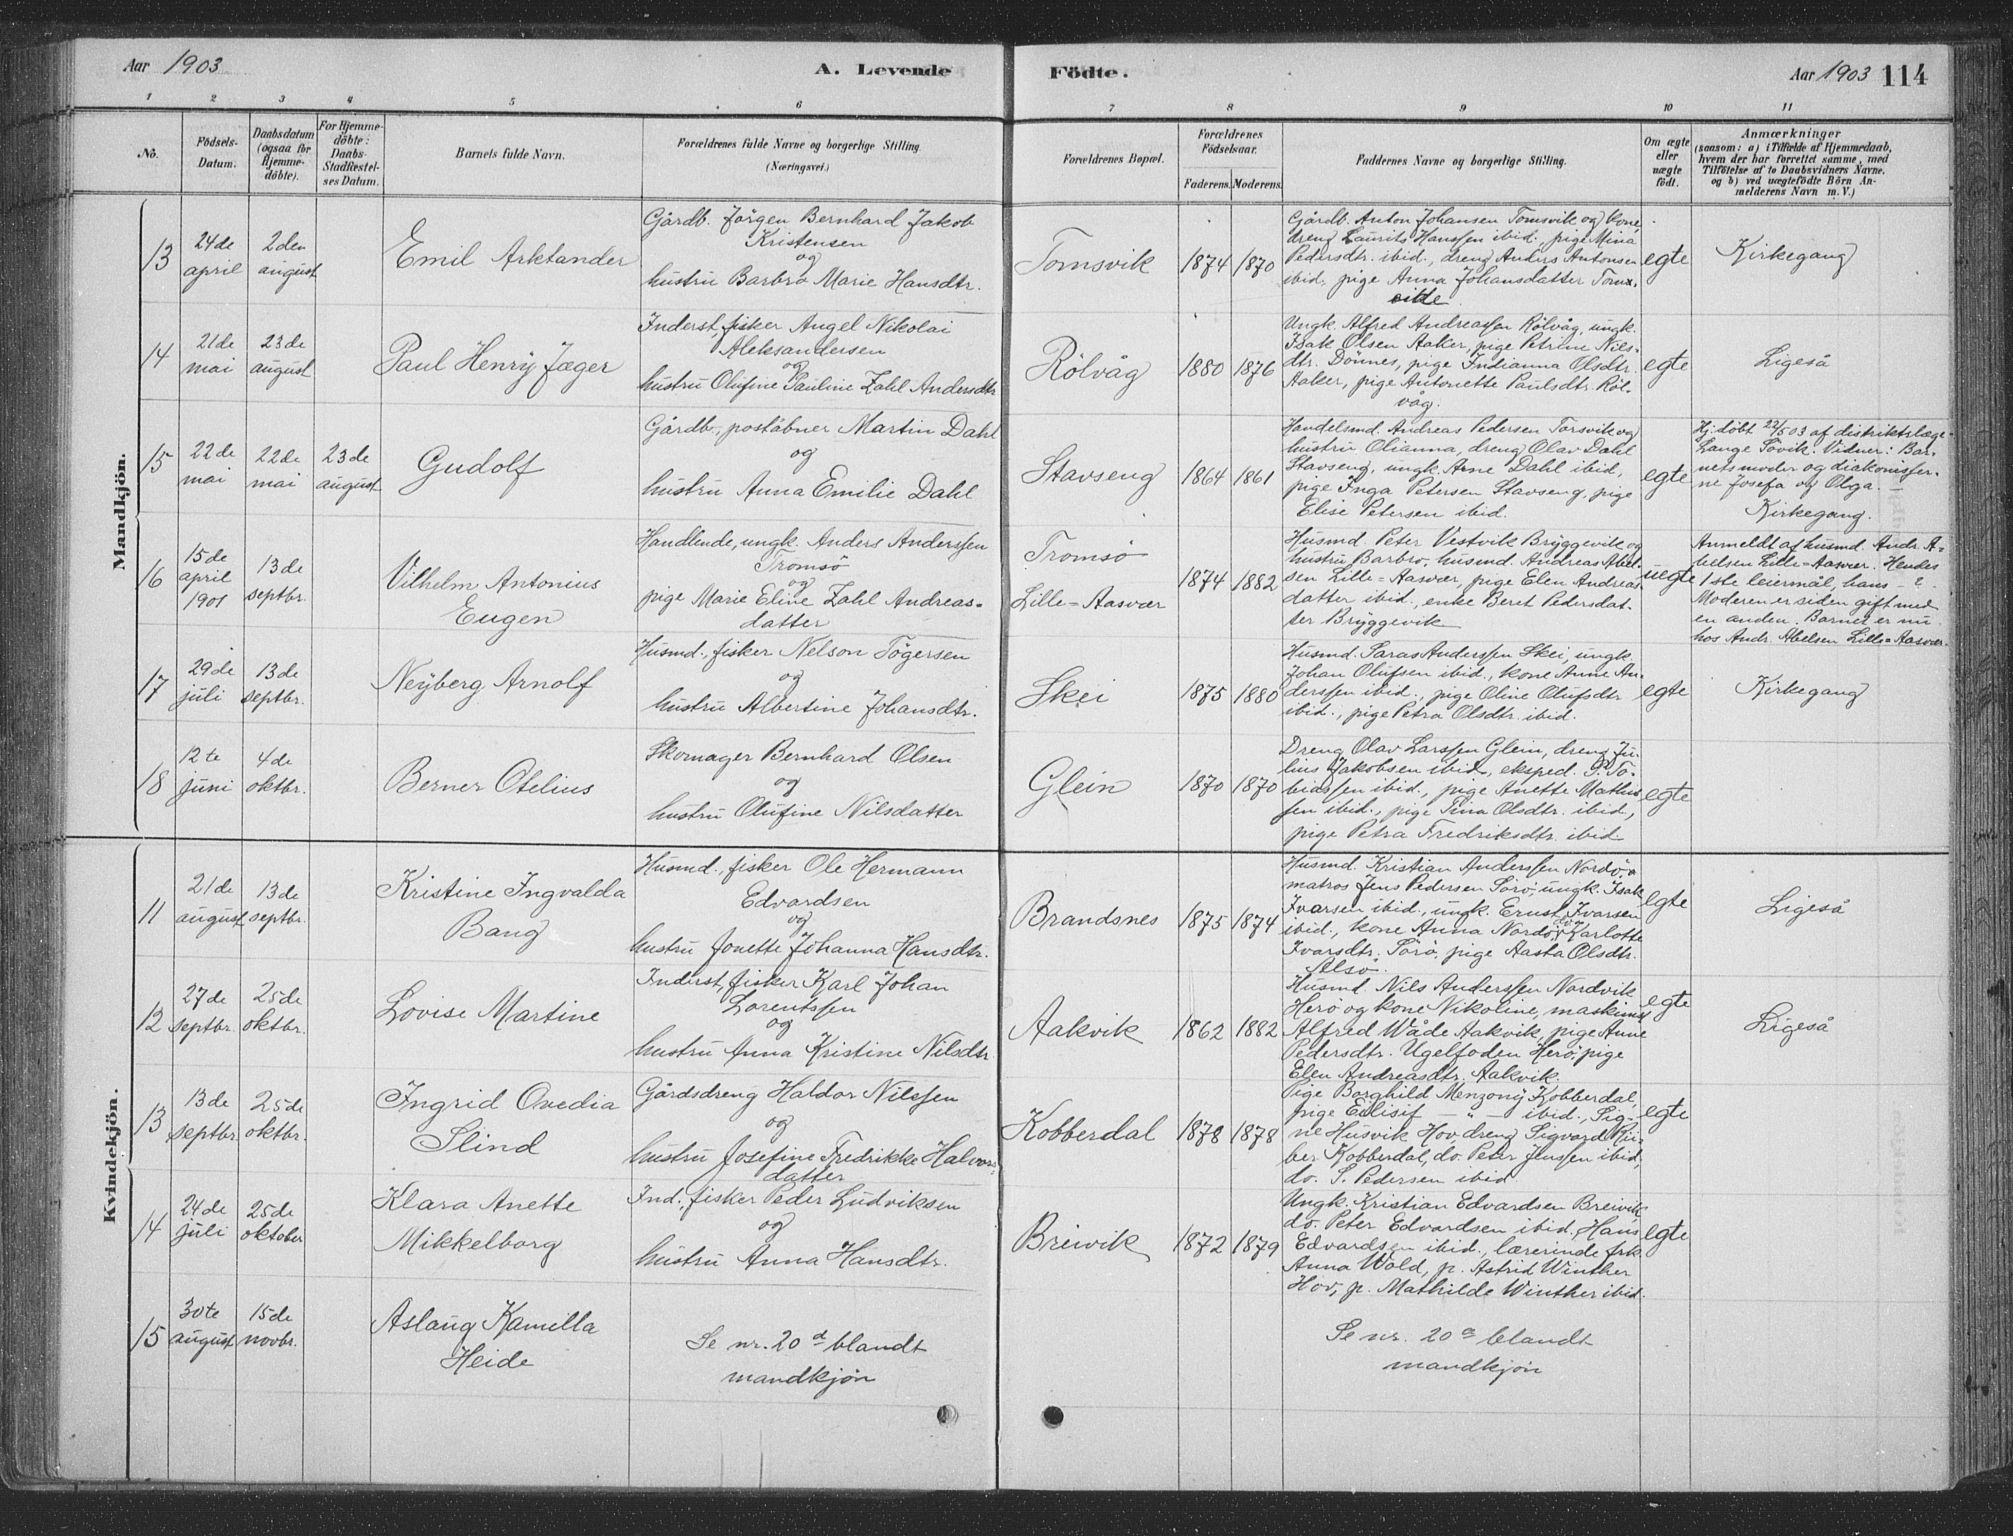 Aar 1903
A. Levende
Födte.
Aar 1903 114
1 2 3 4 5 6 7 8 9 10 11
No.
Födsels-
Datum.
Daabsdatum
(ogsaa for
Hjemme-
döbte).
For Hjemme-
döbte:
Daabs-
Stadfæstel-
ses Datum.
Barnets fulde Navn.
Forældrenes fulde Navne og borgerlige Stilling.
(Næringsvei.)
Forældrenes Bopæl.
Forældrenes
Födselsaar.
Faderens. Moderens.
Faddernes Navne og borgerlige Stilling.
Om ægte
eller
uægte
födt.
Anmærkninger
(saasom: a) i Tilfælde af Hjemmedaab,
hvem der har forrettet samme, med
Tilföielse af to Daabsvidners Navne,
og b) ved uægtefödte Börn An-
melderens Navn m. V.)
Mandkjön.
13
24de
april
2den
august
Emil Arktander
Gårdb. Jörgen Bernhard Jakob
Kristensen
og
hustru Barbro Marie Hansdtr.
Tomsvik
1874 1870
Gårdb. Anton Johansen Tomsvik og kone,
dreng Laurits Hanssen ibid., pige Mina
Pedersdtr. ibid., dreng Anders Antonsen
ibid., pige Anna Johansdatter Toms-
vik
egte
Kirkegang
14
21de
mai
23de
august
Paul Henry Jæger
Inderst, fisker Angel Nikolai
Aleksandersen
og
hustru Olufine Pauline Zahl Andersdtr
Rölvåg
1880 1876
Ungk. Alfred Andreassen Rölvåg, ungk.
Isak Olsen Aaker, pige Petrine Nils-
dtr. Dönnes, pige Indianna Olsdtr.
Aaker, pige Antonette Paulsdtr. Röl-
våg.
egte
Ligeså
15
22de
mai
22de
mai
23de
august
Gudolf
Gårdb., poståbner Martin Dahl
og
hustru Anna Emilie Dahl
Stavseng
1864 1861
Handelsmd Andreas Pedersen Torsvik og
hustru Olianna, dreng Olav Dahl
Stavseng, ungk. Arne Dahl ibid.,
pige Inga Petersen Stavseng, pige
Elise Petersen ibid.
egte
Hj. döbt 22/5 03 af distriktslæge
Lange Sövik. Vidner: Bar-
nets moder og diakonisser-
ne Josefa og Olga.
Kirkegang.
16
15de
april
1901
13de
septbr.
Vilhelm Antonius
Eugen
Handlende, ungk. Anders Anderssen
Tromsö
og
pige Marie Eline Zahl Andreas-
datter
Tromsö
Lille-Aasvær
1874 1882
Husmd Peter Vestvik Bryggevik og
hustru Barbro, husmd. Andreas Abel-
sen Lille-Aasvær, pige Elen Andreas-
datter ibid., enke Beret Pedersdat-
ter Bryggevik
uegte
Anmeldt af husmd. Andr. A-
belsen Lille-Aasvær. Hendes
1ste leiermål, hans - ?
Moderen er siden gift med
en anden. Barnet er nu
hos Andr. Abelsen Lille-Aasvær.
17
29de
juli
13de
septbr.
Neyberg Arnolf
Husmd., fisker Nelson Tögersen
og
hustru Albertine Johansdtr.
Skei
1875 1880
Husmd. Saras Anderssen Skei, ungk.
Johan Olufsen ibid., kone Anne An-
derssen ibid., pige Oline Olufsdtr
ibid., pige Petra Olsdtr. ibid.
egte
Kirkegang
18
12te
juni
4de
oktbr.
Berner Otelius
Skomager Bernhard Olsen
og
hustru Olufine Nilsdatter
Glein
1870 1870
Dreng Olav Larssen Glein, dreng Ju-
lius Jakobsen ibid., eksped. P. To-
biassen ibid., pige Anette Mathis-
sen ibid., pige Tina Olsdtr. ibid.,
pige Petra Fredriksdtr. ibid.
egte
Kvindekjön.
11
21de
august
13de
septbr.
Kristine Ingvalda
Bang
Husmd., fisker Ole Hermann
Edvardsen
og
hustru Jonette Johanna Hansdtr.
Brandsnes
1875 1874
Husmd. Kristian Anderssen Nordö,
matros Jens Pedersen Sörö, ungk. Isak
Ivarsen ibid., ungk. Ernst Ivarsen
ibid., kone Anna Nordö, Karlotte
Ivarsdtr. Sörö, pige Aasta Olsdtr.
Alsö.
egte
Ligeså
12
27de
septbr.
25de
oktbr.
Lovise Martine
Inderst, fisker Karl Johan
Lorentssen
og
hustru Anna Kristine Nilsdtr.
Aakvik
1862 1882
Husmd Nils Anderssen Nordvik
Herö og kone Nikoline, maskinist
Alfred Wåde Aakvik, pige Anne
Pedersdtr. Ugelfoden Herö, pige
Elen Andreasdtr. Aakvik.
egte
Ligeså
13
13de
septbr
25de
oktbr.
Ingrid Ovedia
Slind
Gårdsdreng Haldor Nilssen
og
hustru Josefine Fredrikke Halvors-
datter
Kobberdal
1878 1878
Pige Borghild Menzony Kobberdal,
pige Edlisif — " — ibid., Sig-
ne Husvik Hov, dreng Sigvard Rii-
ber Kobberdal, do. Peter Jenssen ibid,
do. S. Pedersen ibid
egte
14
24de
juli
25de
oktober
Klara Anette
Mikkelborg
Ind., fisker Peder Ludviksen
og
hustru Anna Hansdtr.
Breivik
1872 1879
Ungk. Kristian Edvardsen Breivik
do. Peter Edvardsen ibid., Hans
Edvardsen ibid., lærerinde frk.
Anna Wold, p. Astrid Winther
Hov, p. Mathilde Winther ibid.
egte
15
30te
august
15de
novbr.
Aslaug Kamilla
Heide
Se nr. 20 d blandt
mandkjön
Se nr. 20 a blandt
mandkjön